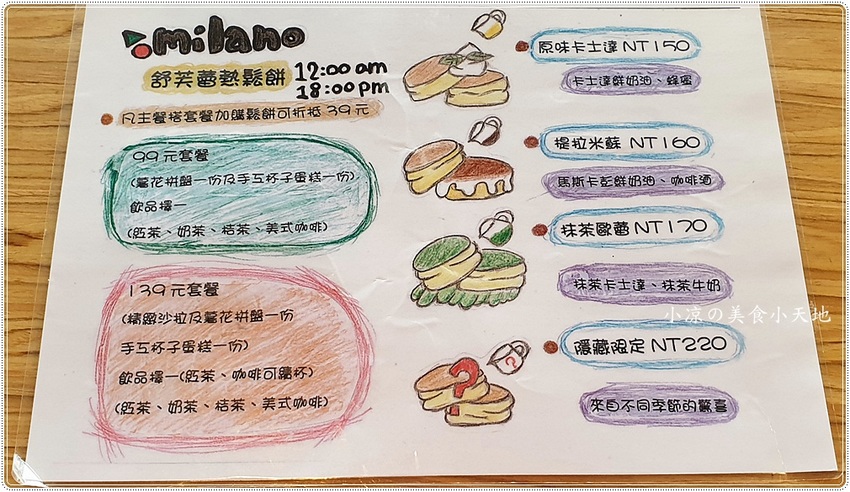 milano
舒芙蕾熱鬆餅 12:00 am
18:00 pm
凡主餐搭套餐加購鬆餅可折抵 39 元
99 元套餐
(薯花拼盤一份及手工杯子蛋糕一份)
飲品擇一
(紅茶、奶茶、桔茶、美式咖啡)
139 元套餐
(精緻沙拉及薯花拼盤一份
手工杯子蛋糕一份)
飲品擇一(紅茶、咖啡可續杯)
(紅茶、奶茶、桔茶、美式咖啡)
原味卡士達 NT150
卡士達鮮奶油、蜂蜜
提拉米蘇 NT160
馬斯卡彭鮮奶油、咖啡酒
抹茶歐蕾 NT170
抹茶卡士達、抹茶牛奶
隱藏限定 NT220
來自不同季節的驚喜
?
?
小涼の美食小天地